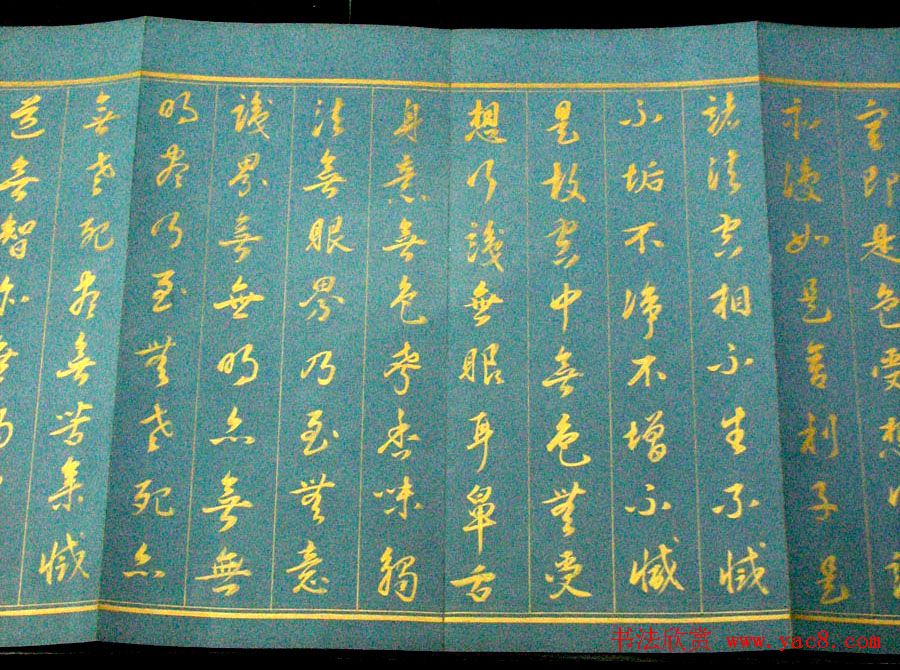 空即是色受想行識
亦復如是舍利子是
諸法空相不生不滅
不垢不淨不增不減
是故空中無色無受
想行識無眼耳鼻舌
身意無色聲香味觸
法無眼界乃至無意
識界無無明亦無無
明盡乃至無老死亦
無老死盡無苦集滅
道無智亦無得
书法欣赏 www.yac8.com